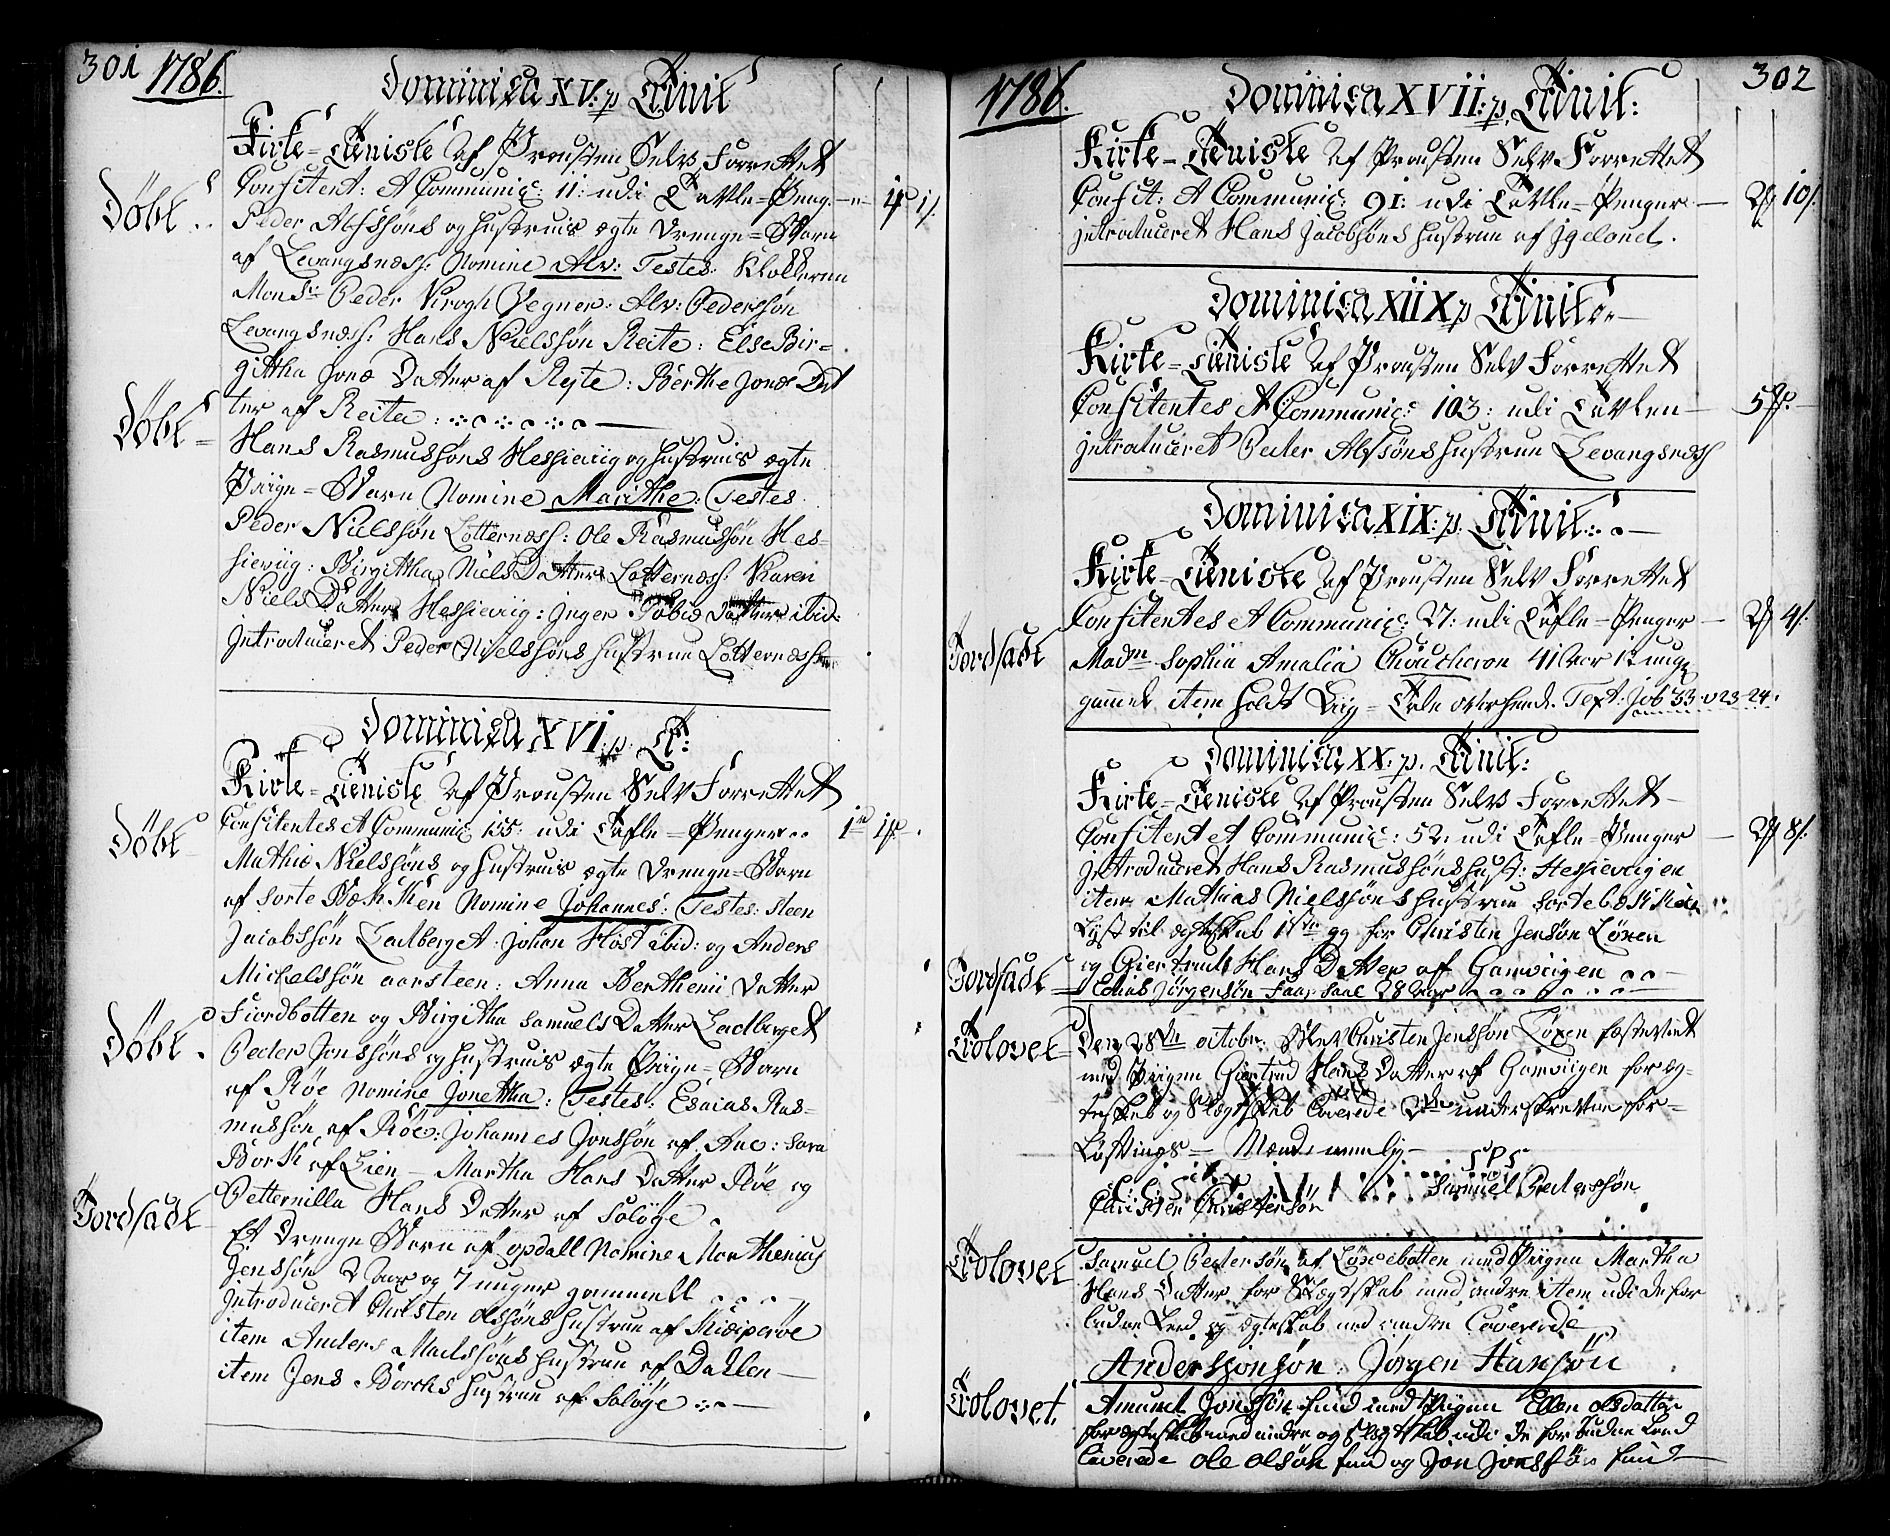 301 1786.
Dominica XV: p Trinit
Kirke-Tieniste af Prousten Selv Forrettet
Confitent: et Communic: 11: udi Tavle-Peng.
Døbt
Peder Alfssøns og hustrues ægte Drenge-Barn
af Levangsnæss: Nomine Alv: Testes: Klokkeren
Monsr Peder Krogh Vegner: Alv: Pederssøn
Levangsnæss: Hans Nielssøn Reite: Else Bir-
gittha Jons Datter af Rejte: Berthe Jons Dat
ter af Reite:
Døbt
Hans Rasmussøns Hessieviig og hustrues ægte
Piige-Barn Nomine Marithe: Testes
Peder Nielssøn Lotternæss: Ole Rasmussøn Hes-
sieviig: Birgitha Niels Datter Lotternæss: Karen
Niels Datter Hessieviig: Inger Tobias Datter ibid:
Introduceret Peder Nielssøns hustrue Lotternæss
Dominica XVI: p. T:
Kirke-Tieniste af Prousten Selv Forrettet
Confitentes et Communic 155: udi Tafle-Penger
Døbt
Mathis Nielssøns og hustrues ægte Drenge-Barn
af Sorte Bækken Nomine Johannes: Testes: Steen
Jacobssøn Ladberget: Johan Høst ibid: og Anders
Michelssøn aarsteen: Anna Berthenii Datter
Fiordbotten og Birgitha Samuels Datter Ladberget
Døbt
Peder Jonssøns og hustrues ægte Piige-Barn
af Røe Nomine Jonettha: Testes: Esaias Ras-
mussøn af Røe: Johannes Jonssøn af Ane: Sara
Bork af Lien - Martha Hans Datter Røe og
Petternilla Hans Datter af Soløye
Jordsadt
Et Drenge Barn af opdall Nomine Morthenius
Jenssøn 2 aar og 7 uger gammell
Introduceret Christen olssøns hustrue af
item Anders Madssøns hustrue af Dahlen
item Jens Borchs hustrue af Soløye
1786. 302
Dominica XVII: p. Trinit:
Kirke-Tieniste af Prousten Selv Forrettet
Confit: et Communic: 91: udi Tavle-Penger 10
Introduceret Hans Jacobsøns hustrue af Igeland.
Dominica XIIX p Trinit:
Kirke-Tieniste af Prousten Selv Forrettet
Confitentes et Communic: 103: udi Tavlen
Introduceret Peder Alfsøns hustrue Levangsnæss
Dominica XIX: p. Trinit:
Kirke-Tieniste af Prousten Selv Forrettet
Confitentes et Communic: 27: udi Tafle-Penger
Jordsadt
Madm Sophia Amalia 41 Aar 12 uger
gammel item holdt Liig-Tale overhende. Text: Job 33. v 23-24.
Dominica XX. p. Trinit:
Kirke-Tieniste af Prousten Selv Forrettet
Confitent et Communic: 52. udi Tafle-Penger
Introduceret Hans Rasmussøns hust: Hessieviigen
item Mathias Nielssøns hustrue Sortebækken
Lyst til ægteskab 1ste gg for Christen Jensøn Løxen
og Giertrud Hans Datter af Gamviigen
Jordsadt
Tobias Jørgensøn 28 aar
Trolovet
Den 28de octobr: blev Christen Jenssøn Løxen fæstevet
med Piigen Giertrud Hans Datter af Gamviigen for æg-
teskab og Slægtskab Caverede 2de underskrevne for-
Løftnings-Mænd nemlig
SPS
Christen Christensøn Samuel Pederssøn
Trolovet
Samuel Pedersøn af Løxebotten med Piigen Martha
Hans Datter for Slægtskab med andre item udi de for
budne Leed og ægteskab med andre Caverede
Anders jonsøn: Jørgen Hansøn
Trolovet.
Amund Jonssøn fund med Piigen Ellen olsdatter
for ægteskab med andre og slægtskab udi de forbudne Leed
Caverede Ole olsøn fun og Jon Jonssøn fund